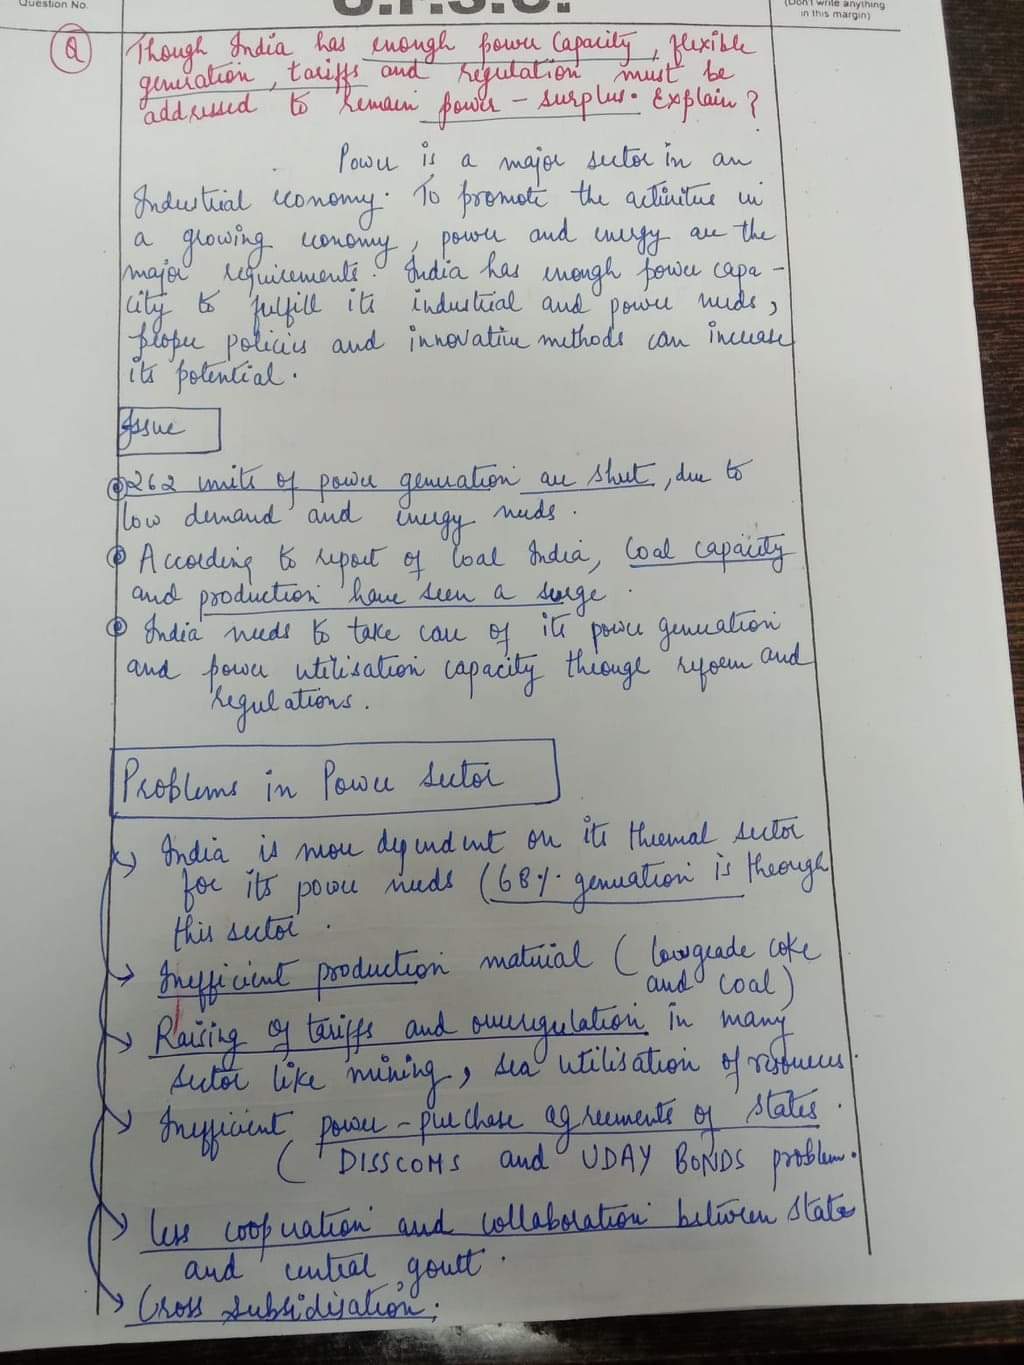 Question No.
U.P.S.C.
(Don't write anything
in this margin)
Q Though India has enough power capacity, flexible
generation, tariffs and regulation must be
addressed to remain power - surplus. Explain?
Power is a major sector in an
Industrial economy. To promote the activities in
a growing economy, power and energy are the
major requirements. India has enough power capa -
city to fulfill its industrial and power needs,
proper policies and innovative methods can increase
its potential.
Issue
262 units of power generation are shut, due to
low demand and energy needs.
According to report of Coal India, Coal capacity
and production have seen a surge.
India needs to take care of its power generation
and power utilisation capacity through reform and
regulations.
Problems in Power Sector
India is more dependent on its thermal sector
for its power needs (68% generation is through
this sector.
Inefficient production material (low grade coke
and coal)
Raising of tariffs and overregulation in many
sector like mining, sea utilisation of resources.
Inefficient power - purchase agreements of states.
( DISSCOMS and UDAY BONDS problem.
less cooperation and collaboration between State
and central govt.
Cross subsidisation;